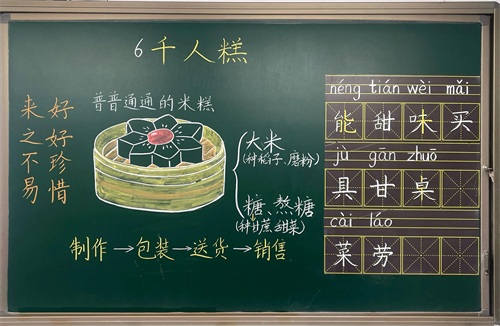 6 千人糕
来之不易
好好珍惜
普普通通的米糕
大米
(种稻子、磨粉)
糖、熬糖
(种甘蔗、甜菜)
制作→包装→送货→销售
néng tián wèi mǎi
能 甜 味 买
jù gān zhuō
具 甘 桌
cài láo
菜 劳